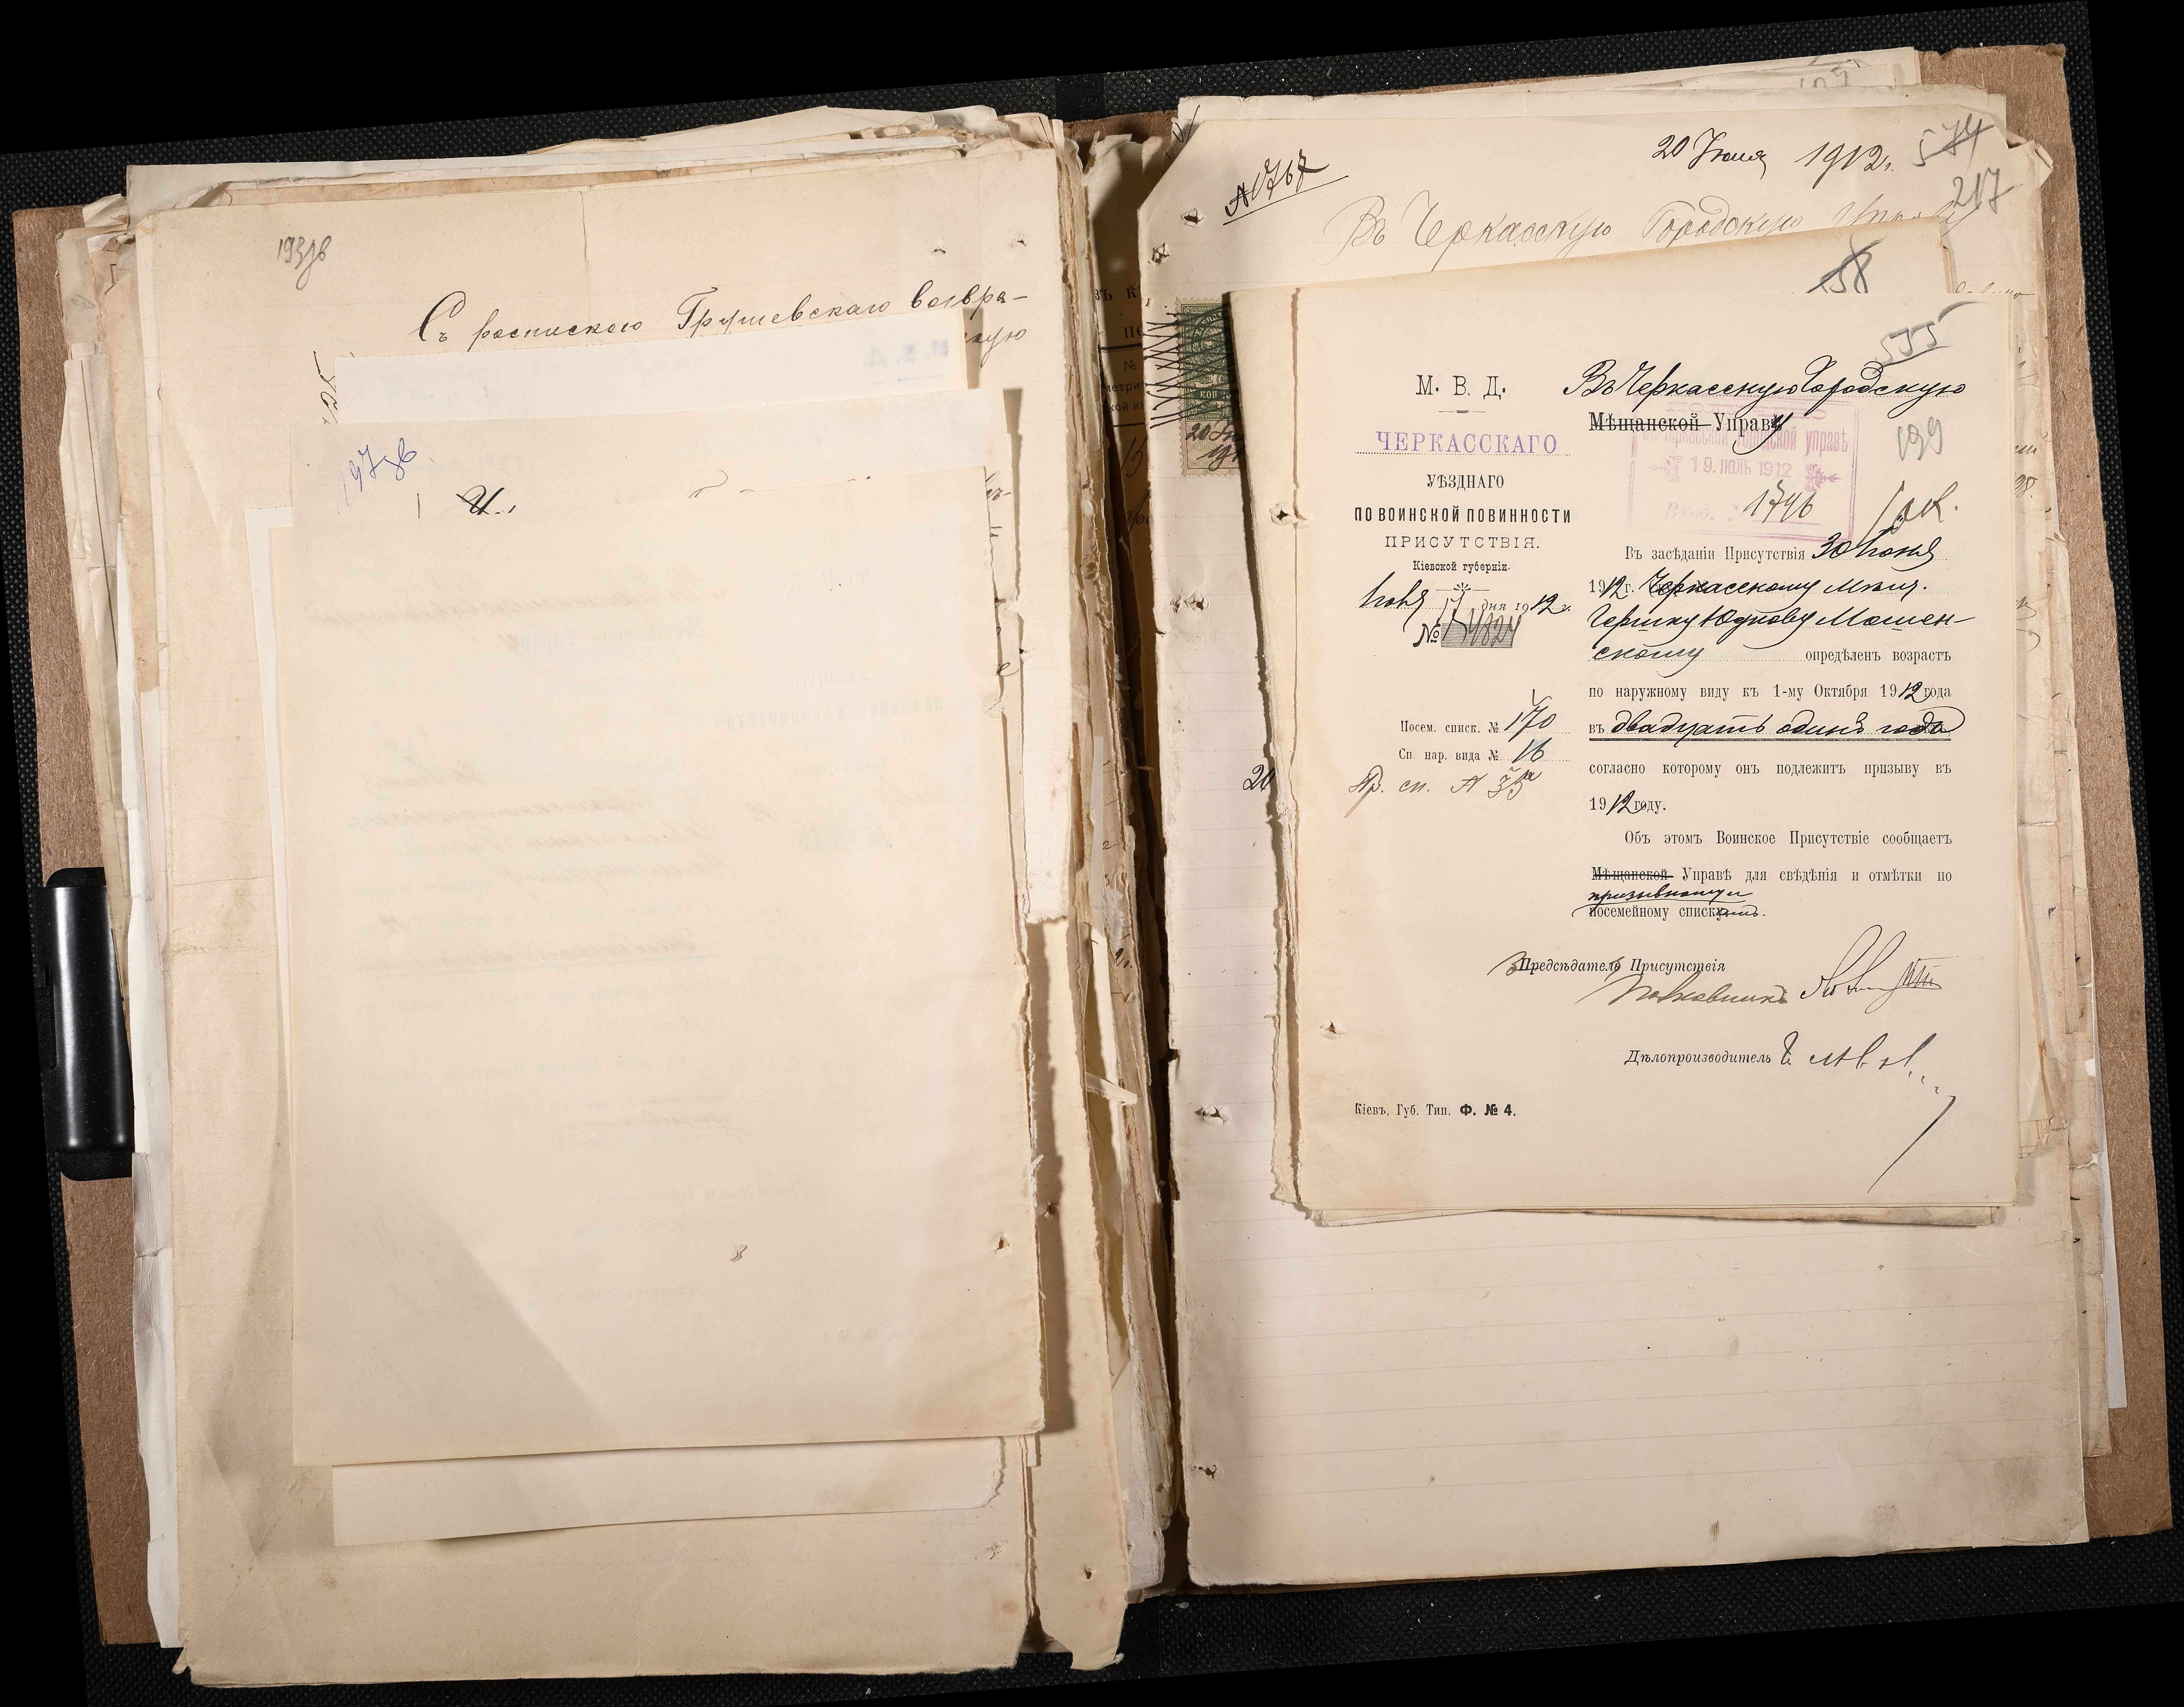 193 зв
Съ роспискою Грушевскаго возвра-
197 зв.
№ 1767
20 Июля 1912 г.
574
217
Въ Черкасскую Городскую Управу
коп
20
158
575
199
М. В. Д.
ЧЕРКАССКАГО
УѢЗДНАГО
ПО ВОИНСКОЙ ПОВИННОСТИ
ПРИСУТСТВІЯ.
Кіевской губерніи.
Іюля 17 дня 1912 г.
№ 4824
Посем. списк. № 170
Сп. нар. вида № 16
Пр. сп. № 35
Въ Черкасскую Городскую
Мѣщанской Управу
городской управѣ
19. ІЮЛЬ 1912
Вход. 1796
Въ засѣданіи Присутствія 30 Іюня
1912 г. Черкасскому мѣщ.
Гершку Юдкову Мошен-
скому опредѣленъ возрастъ
по наружному виду къ 1-му Октября 1912 года
въ двадцать одинъ года
согласно которому онъ подлежитъ призыву въ
1912 году.
Объ этомъ Воинское Присутствіе сообщаетъ
Мѣщанской Управѣ для свѣдѣнія и отмѣтки по
призывному и
посемейному спискамъ.
Предсѣдатель Присутствія
Полковникъ
Дѣлопроизводитель
Кіевъ, Губ. Тип. Ф. № 4.